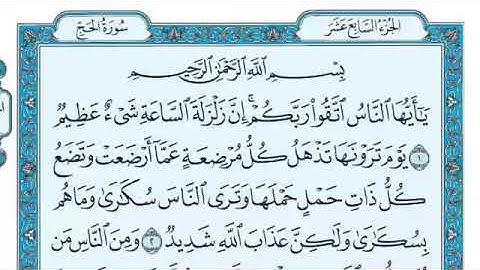 سُورَةُ الحَجِّ
الجُزْءُ السَّابِعَ عَشَرَ
بِسْمِ ٱللَّهِ ٱلرَّحْمَٰنِ ٱلرَّحِيمِ
يَٰٓأَيُّهَا ٱلنَّاسُ ٱتَّقُوا۟ رَبَّكُمْ ۚ إِنَّ زَلْزَلَةَ ٱلسَّاعَةِ شَىْءٌ عَظِيمٌ
١ يَوْمَ تَرَوْنَهَا تَذْهَلُ كُلُّ مُرْضِعَةٍ عَمَّآ أَرْضَعَتْ وَتَضَعُ
كُلُّ ذَاتِ حَمْلٍ حَمْلَهَا وَتَرَى ٱلنَّاسَ سُكَٰرَىٰ وَمَا هُم
بِسُكَٰرَىٰ وَلَٰكِنَّ عَذَابَ ٱللَّهِ شَدِيدٌ ٢ وَمِنَ ٱلنَّاسِ مَن